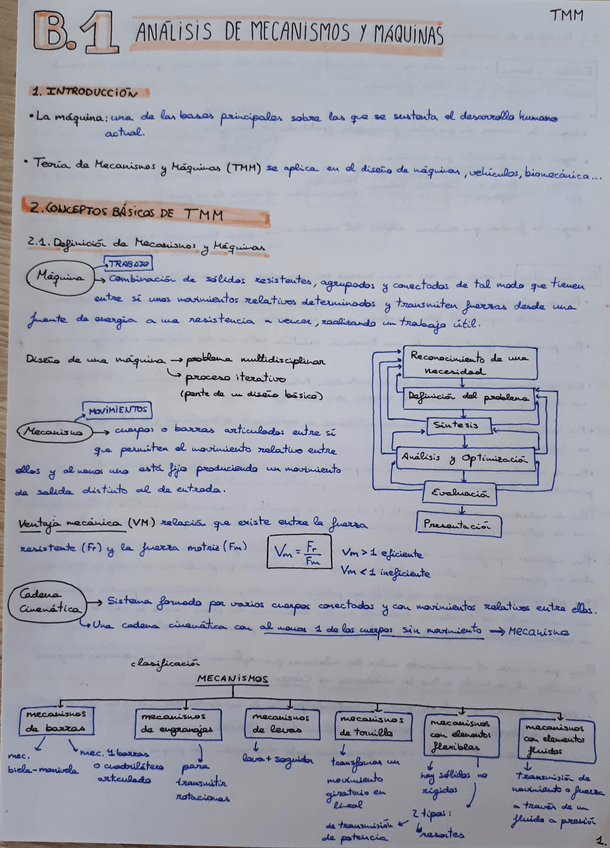 TMM
B.1 ANÁLISIS DE MECANISMOS Y MÁQUINAS
1. INTRODUCCIÓN
• La máquina: una de las bases principales sobre las que se sustenta el desarrollo humano
actual.
• Teoría de Mecanismos y Máquinas (TMM) se aplica en el diseño de máquinas, vehículos, biomecánica...
2. CONCEPTOS BÁSICOS DE TMM
2.1. Definición de Mecanismos y Máquinas
TRABAJO
Máquina → combinación de sólidos resistentes, agrupados y conectados de tal modo que tienen
entre sí unos movimientos relativos determinados y transmiten fuerzas desde una
fuente de energía a una resistencia a vencer, realizando un trabajo útil.
Diseño de una máquina → problema multidisciplinar
↳ proceso iterativo
(parte de un diseño básico)
MOVIMIENTOS
Mecanismo → cuerpos o barras articulados entre sí
que permiten el movimiento relativo entre
ellos y al menos uno está fijo produciendo un movimiento
de salida distinto al de entrada.
Reconocimiento de una
necesidad
Definición del problema
Síntesis
Análisis y Optimización
Evaluación
Presentación
Ventaja mecánica (VM) relación que existe entre la fuerza
resistente (Fr) y la fuerza motriz (Fm)
Vm = Fr/Fm
Vm > 1 eficiente
Vm < 1 ineficiente
Cadena
Cinemática → Sistema formado por varios cuerpos conectados y con movimientos relativos entre ellos.
↳ Una cadena cinemática con al menos 1 de los cuerpos sin movimiento → Mecanismo
clasificación
MECANISMOS
mecanismos
de barras
mec.
biela-manivela
mec. 4 barras
o cuadrilátero
articulado
mecanismos
de engranajes
para
transmitir
rotaciones
mecanismos
de levas
leva + seguidor
mecanismos
de tornillo
transforman un
movimiento
giratorio en
lineal
mecanismos
con elementos
flexibles
hay sólidos no
rígidos
2 tipos:
de transmisión
de potencia
resortes
mecanismos
con elementos
fluidos
transmisión de
movimiento o fuerza
a través de un
fluido a presión
1.